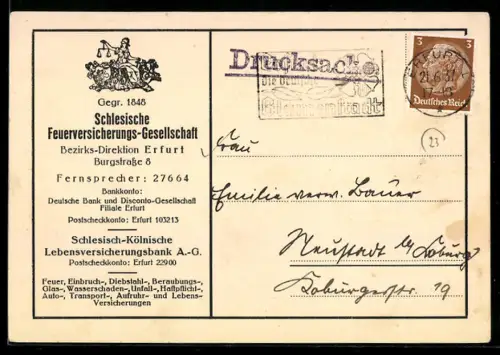 Gegr. 1848
Schlesische
Feuerversicherungs-Gesellschaft
Bezirks-Direktion Erfurt
Burgstraße 8
Fernsprecher: 27664
Bankkonto:
Deutsche Bank und Disconto-Gesellschaft
Filiale Erfurt
Postscheckkonto: Erfurt 103213
Schlesisch-Kölnische
Lebensversicherungsbank A.-G.
Postscheckkonto: Erfurt 22900
Feuer, Einbruch-, Diebstahl-, Beraubungs-,
Glas-, Wasserschaden-, Unfall-, Haftpflicht-,
Auto-, Transport-, Aufruhr- und Lebens-
Versicherungen
Drucksache
Blumenstadt
ERFURT
21.6.37
3 3
Deutsches Reich
23
Frau
Emilie verw. Bauer
Neustadt b/ Coburg
Koburgerstr. 19